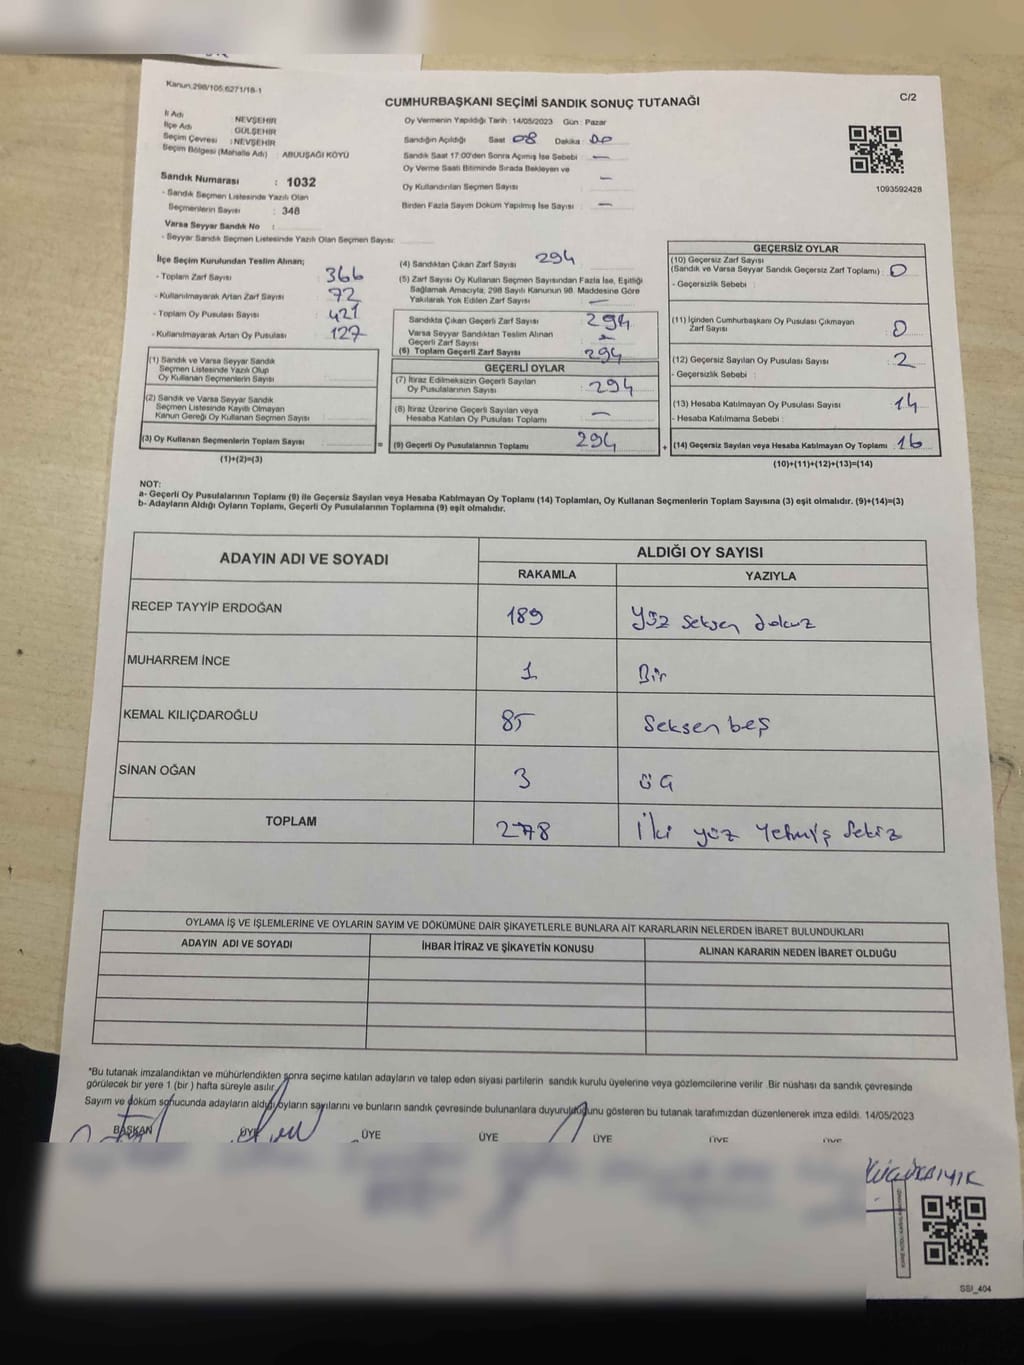 Kanun:298/105;6271/18-1
C/2
CUMHURBAŞKANI SEÇİMİ SANDIK SONUÇ TUTANAĞI
İl Adı : NEVŞEHİR
İlçe Adı : GÜLŞEHİR
Seçim Çevresi : NEVŞEHİR
Seçim Bölgesi (Mahalle Adı) : ABUUŞAĞI KÖYÜ
Sandık Numarası : 1032
- Sandık Seçmen Listesinde Yazılı Olan
Seçmenlerin Sayısı : 348
Varsa Seyyar Sandık No :
- Seyyar Sandık Seçmen Listesinde Yazılı Olan Seçmen Sayısı:
Oy Vermenin Yapıldığı Tarih : 14/05/2023 Gün : Pazar
Sandığın Açıldığı Saat 08 Dakika : 00
Sandık Saat 17:00'den Sonra Açımış İse Sebebi —
Oy Verme Saati Bitiminde Sırada Bekleyen ve
Oy Kullandırılan Seçmen Sayısı —
Birden Fazla Sayım Döküm Yapılmış İse Sayısı —
1093592428
İlçe Seçim Kurulundan Teslim Alınan;
- Toplam Zarf Sayısı 366
- Kullanılmayarak Artan Zarf Sayısı 72
- Toplam Oy Pusulası Sayısı 421
- Kullanılmayarak Artan Oy Pusulası 127
(1) Sandık ve Varsa Seyyar Sandık
Seçmen Listesinde Yazılı Olup
Oy Kullanan Seçmenlerin Sayısı
(2) Sandık ve Varsa Seyyar Sandık
Seçmen Listesinde Kayıtlı Olmayan
Kanun Gereği Oy Kullanan Seçmen Sayısı
(3) Oy Kullanan Seçmenlerin Toplam Sayısı
(1)+(2)=(3)
=
(4) Sandıktan Çıkan Zarf Sayısı 294
(5) Zarf Sayısı Oy Kullanan Seçmen Sayısından Fazla İse, Eşitliği
Sağlamak Amacıyla, 298 Sayılı Kanunun 98. Maddesine Göre
Yakılarak Yok Edilen Zarf Sayısı —
Sandıkta Çıkan Geçerli Zarf Sayısı 294
Varsa Seyyar Sandıktan Teslim Alınan
Geçerli Zarf Sayısı
(6) Toplam Geçerli Zarf Sayısı 294
GEÇERLİ OYLAR
(7) İtiraz Edilmeksizin Geçerli Sayılan
Oy Pusulalarının Sayısı 294
(8) İtiraz Üzerine Geçerli Sayılan veya
Hesaba Katılan Oy Pusulası Toplamı —
(9) Geçerli Oy Pusulalarının Toplamı 294
+
GEÇERSİZ OYLAR
(10) Geçersiz Zarf Sayısı
(Sandık ve Varsa Seyyar Sandık Geçersiz Zarf Toplamı) : 0
- Geçersizlik Sebebi :
(11) İçinden Cumhurbaşkanı Oy Pusulası Çıkmayan
Zarf Sayısı 0
(12) Geçersiz Sayılan Oy Pusulası Sayısı : 2
- Geçersizlik Sebebi :
(13) Hesaba Katılmayan Oy Pusulası Sayısı : 14
- Hesaba Katılmama Sebebi :
(14) Geçersiz Sayılan veya Hesaba Katılmayan Oy Toplamı : 16
(10)+(11)+(12)+(13)=(14)
NOT:
a- Geçerli Oy Pusulalarının Toplamı (9) ile Geçersiz Sayılan veya Hesaba Katılmayan Oy Toplamı (14) Toplamları, Oy Kullanan Seçmenlerin Toplam Sayısına (3) eşit olmalıdır. (9)+(14)=(3)
b- Adayların Aldığı Oyların Toplamı, Geçerli Oy Pusulalarının Toplamına (9) eşit olmalıdır.
ADAYIN ADI VE SOYADI
ALDIĞI OY SAYISI
RAKAMLA YAZIYLA
RECEP TAYYİP ERDOĞAN 189 Yüz Seksen dokuz
MUHARREM İNCE 1 Bir
KEMAL KILIÇDAROĞLU 85 Seksen beş
SİNAN OĞAN 3 üç
TOPLAM 278 İki yüz Yetmiş Sekiz
OYLAMA İŞ VE İŞLEMLERİNE VE OYLARIN SAYIM VE DÖKÜMÜNE DAİR ŞİKAYETLERLE BUNLARA AİT KARARLARIN NELERDEN İBARET BULUNDUKLARI
ADAYIN ADI VE SOYADI İHBAR İTİRAZ VE ŞİKAYETİN KONUSU ALINAN KARARIN NEDEN İBARET OLDUĞU
*Bu tutanak imzalandıktan ve mühürlendikten sonra seçime katılan adayların ve talep eden siyasi partilerin sandık kurulu üyelerine veya gözlemcilerine verilir .Bir nüshası da sandık çevresinde
görülecek bir yere 1 (bir ) hafta süreyle asılır.
Sayım ve döküm sonucunda adayların aldığı oyların sayılarını ve bunların sandık çevresinde bulunanlara duyurulduğunu gösteren bu tutanak tarafımızdan düzenlenerek imza edildi. 14/05/2023
BAŞKAN ÜYE ÜYE ÜYE ÜYE ÜYE ÜYE
SSI_404